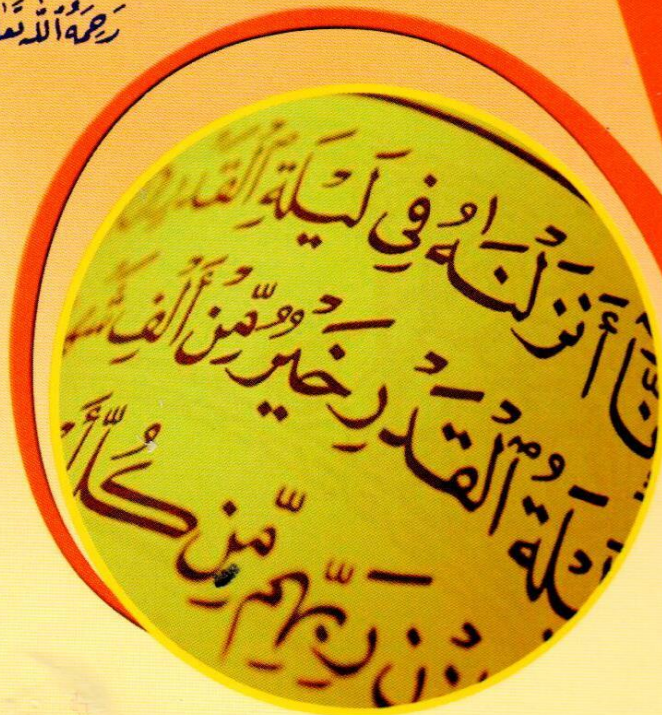 رَحِمَهُ اللّٰهُ
أَنزَلْنَٰهُ فِي لَيْلَةِ ٱلْقَدْرِ
ٱلْقَدْرِ خَيْرٌ مِّنْ أَلْفِ
رَبِّهِم مِّن كُلِّ